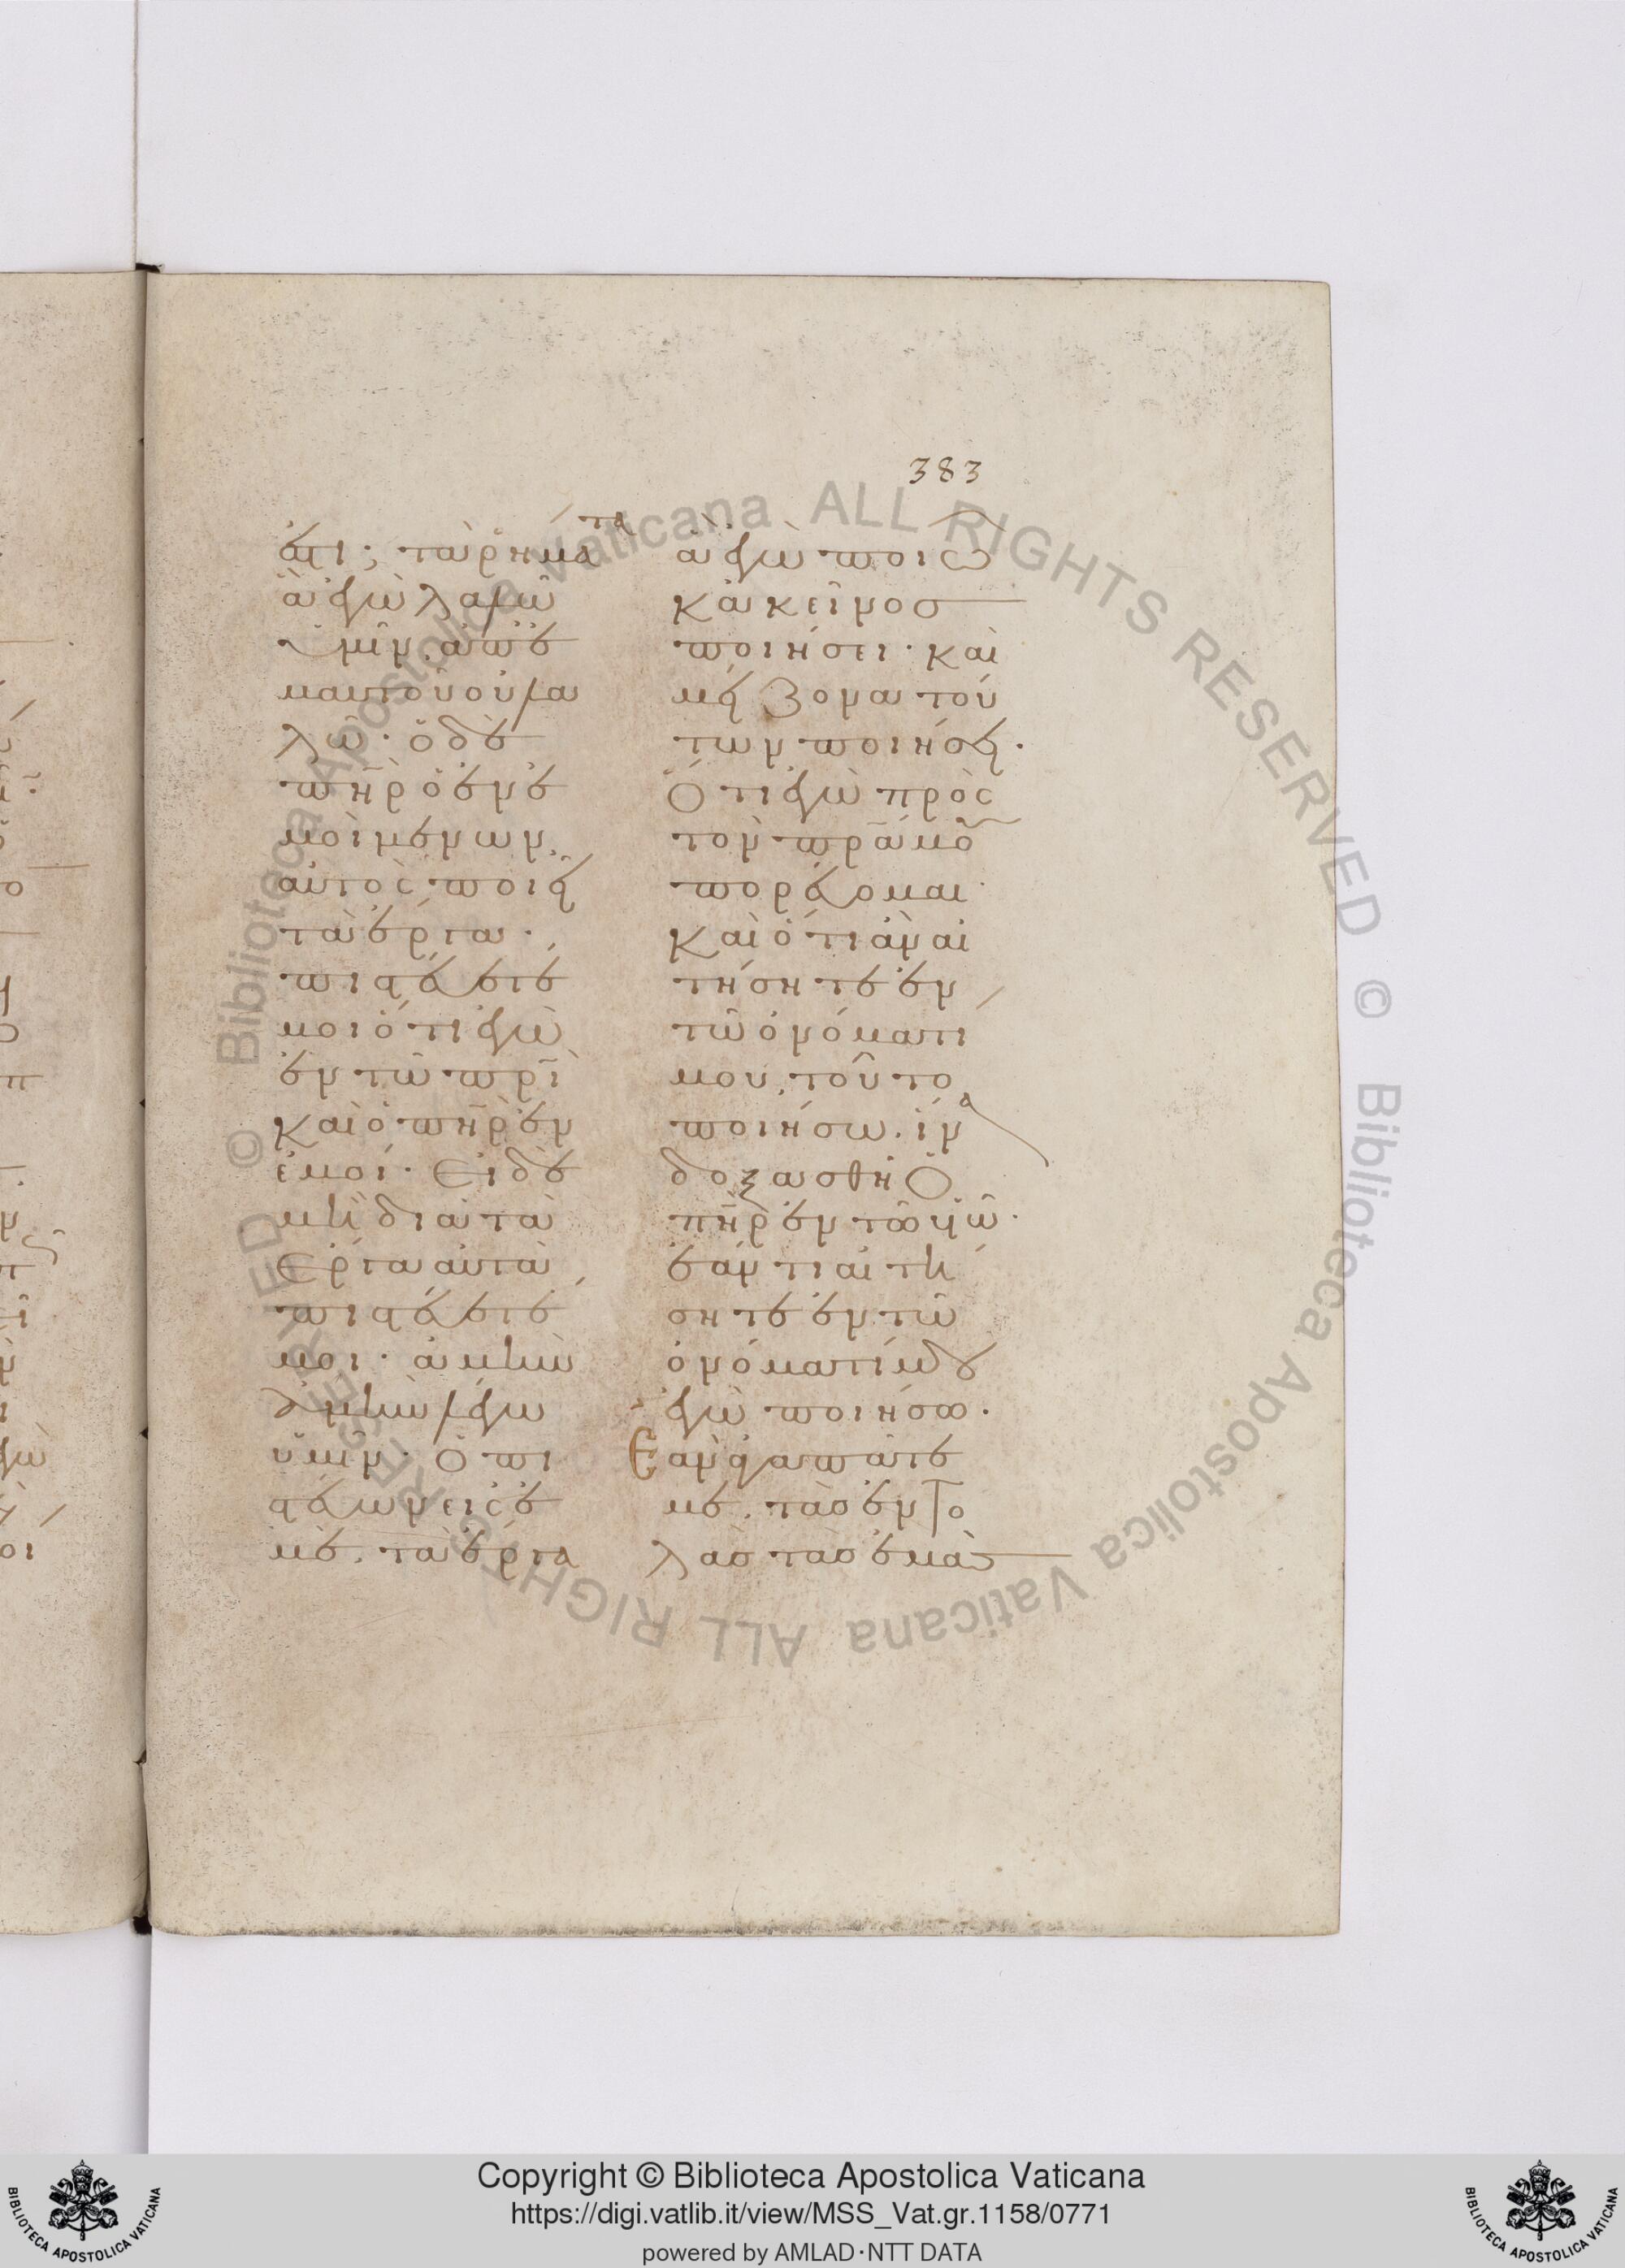 383
ἐστι; τὰ ῥήματα
ἃ ἐγὼ λαλῶ
ὑμῖν, ἀπ' ἐ
μαυτοῦ οὐ λα
λῶ· ὁ δὲ
πηρ ὁ ἐν ἐ
μοὶ μένων,
αὐτὸς ποιεῖ
τὰ ἔργα·
πιστεύετέ
μοι ὅτι ἐγὼ
ἐν τῶ πρὶ
καὶ ὁ πηρ ἐν
ἐμοί· Εἰ δὲ
μὴ διὰ τὰ
Ἔργα αὐτὰ
πιστεύετέ
μοι· ἀμὴν
ἀμὴν λέγω
ὑμῖν· Ὁ πι
στεύων εἰς ἐ
μὲ, τὰ ἔργα
ἃ ἐγὼ ποιῶ
κἀκεῖνος
ποιήσει· καὶ
μείζονα τού
των ποιήσει·
Ὅτι ἐγὼ πρὸς
τὸν πρα μου
πορεύομαι·
Καὶ ὅτι ἂν αἰ
τήσητε ἐν
τῶ ὀνόματι
μου, τοῦτο
ποιήσω· ἵνα
δοξασθῆ Ὁ
πηρ ἐν τῶ υἱῶ·
ἐάν τι αἰτή
σητε ἐν τῶ
ὀνόματί μου
ἐγὼ ποιήσω·
Ἐὰν ἀγαπᾶτέ
με, τὰς ἐντο
λὰς τὰς ἐμὰς
© Biblioteca Apostolica Vaticana ALL RIGHTS RESERVED © Biblioteca Apostolica Vaticana ALL RIGHTS RESERVED
Copyright © Biblioteca Apostolica Vaticana
https://digi.vatlib.it/view/MSS_Vat.gr.1158/0771
powered by AMLAD·NTT DATA
BIBLIOTECA APOSTOLICA VATICANA
BIBLIOTECA APOSTOLICA VATICANA